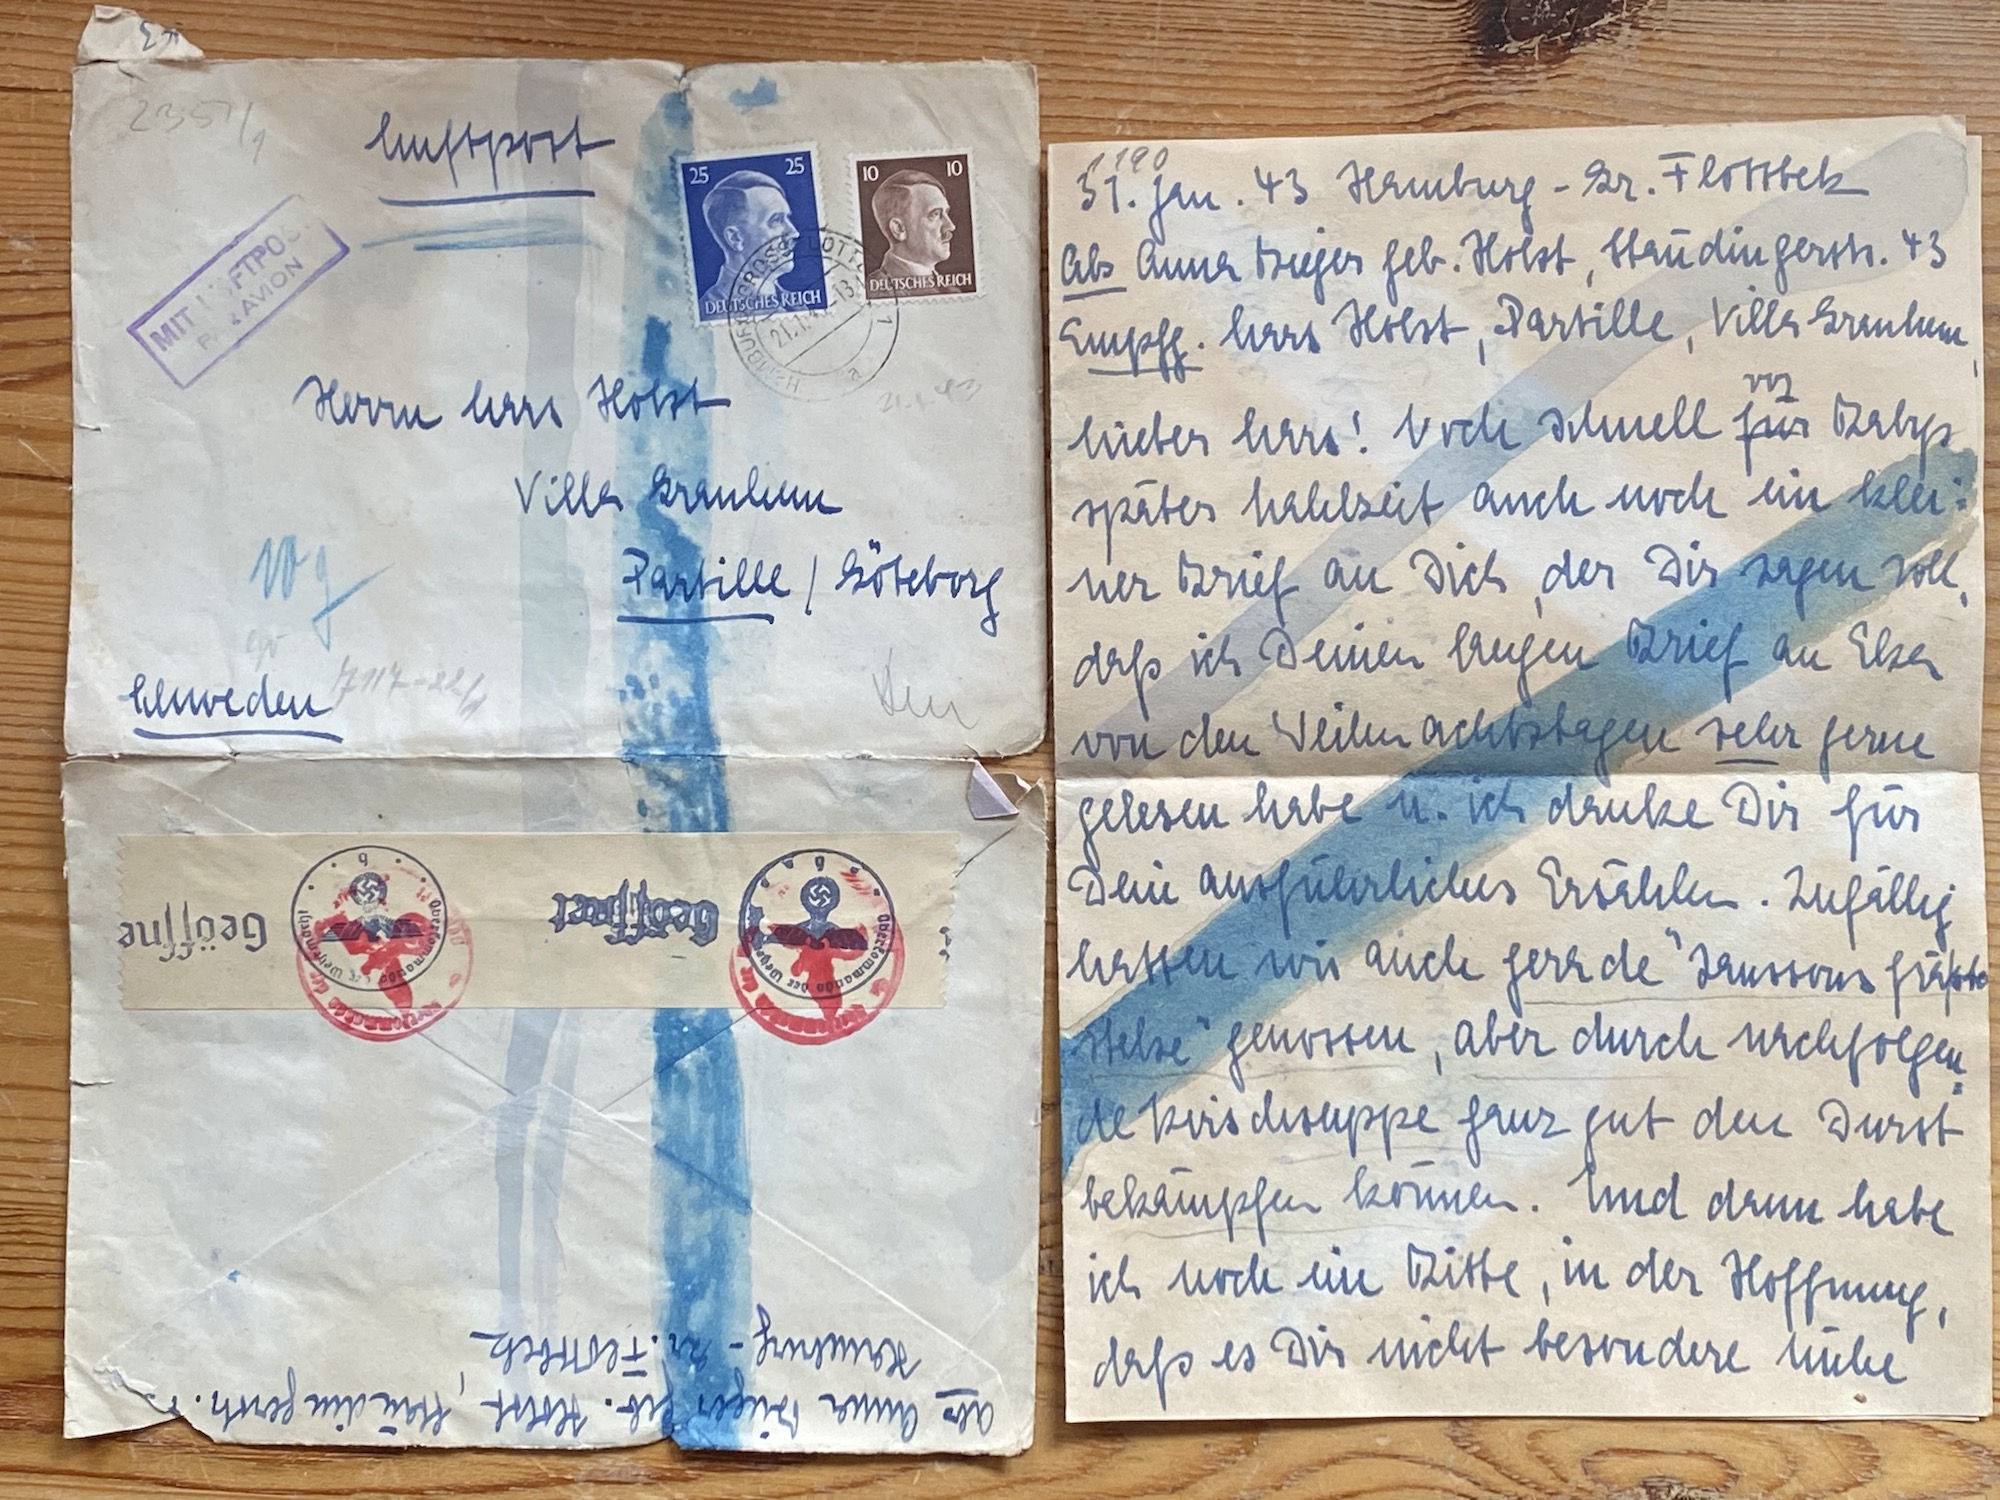 Luftpost
MIT LUFTPOST
PAR AVION
25 25
DEUTSCHES REICH
10 10
DEUTSCHES REICH
21.1.
Herrn Lars Holst
Villa Granhem
Partille / Göteborg
Schweden
Geöffnet
Oberkommando der Wehrmacht
b
Geöffnet
Oberkommando der Wehrmacht
b
Abs Anna Rieger geb. Holst, Staudingerstr.
Hamburg - Gr. Flottbek
Jan. 43 Hamburg - Gr. Flottbek
Abs Anna Rieger geb. Holst, Staudingerstr. 43
Empfg. Lars Holst, Partille, Villa Granhem,
Lieber Lars! Noch schnell vor Babys
später Mahlzeit auch noch ein klei-
ner Brief an Dich, der Dir sagen soll,
daß ich Deinen langen Brief an Elsa
von den Weihnachtstagen sehr gerne
gelesen habe u. ich danke Dir für
Dein ausführliches Erzählen. Zufällig
hatten wir auch gerade "Janssons
" genossen, aber durch nachfolgen-
de Kirschsuppe ganz gut den Durst
bekämpfen können. Und dann habe
ich noch ein Bitte, in der Hoffnung,
daß es Dir nicht besondere Mühe